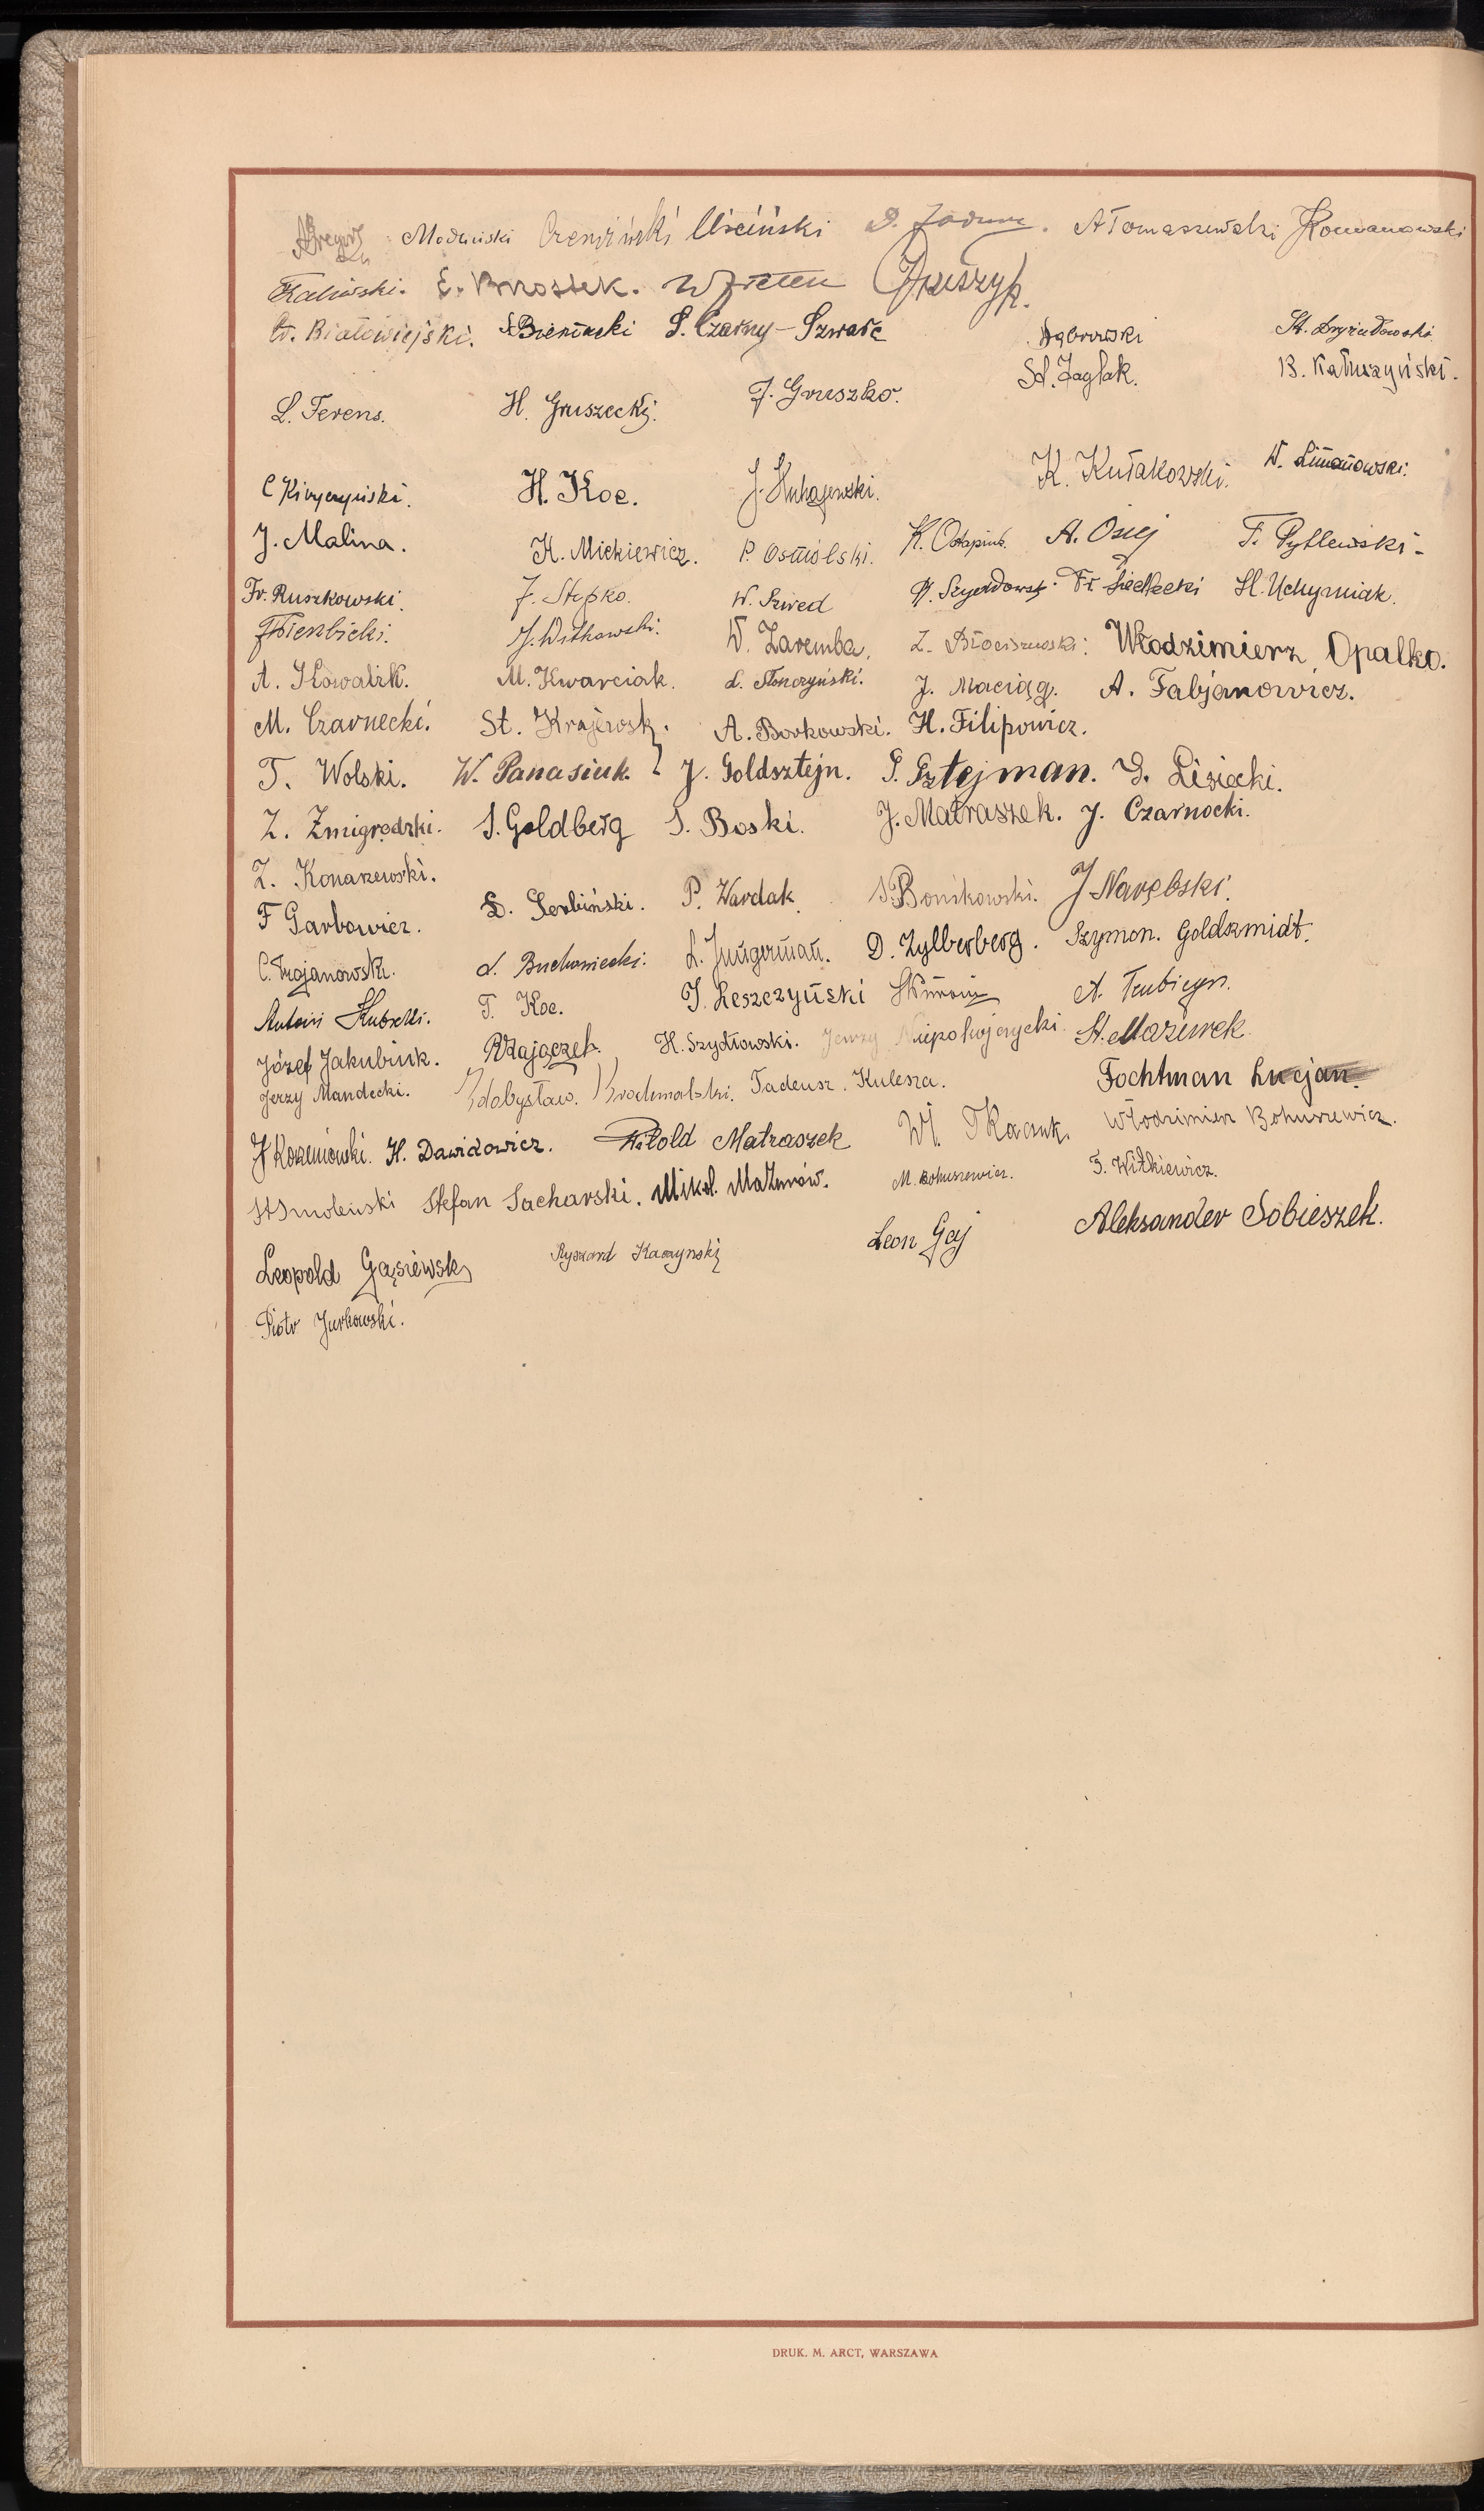 Modliński Uściński A Tomaszewski Romanowski
Kaliński. E. Brzostek.
W. Białowiejski. S. Czarny-Szwarc Dąbrowski
L. Ferens. H. Gruszecki. J. Gruszko. St. Jaglak. B. Kałuszyński.
H. Koc. K. Kułakowski. W. Limanowski.
J. Malina. K. Mickiewicz. P. Osmólski. K. Ostapiuk. A. Osiej F. Pytlewski
Fr. Ruszkowski. J. Stepko. W. Szwed Fr. Siedlecki H. Uchymiak.
J. Witkowski. W. Zaremba. Z. Błociszewski. Włodzimierz Opalko.
A. Kowalik. M. Kwarciak. L. Słonczyński. J. Maciąg. A. Fabjanowicz.
M. Czarnecki. St. Krajewski. A. Borkowski. H. Filipowicz.
T. Wolski. W. Panasiuk. J. Goldsztejn. P. Sztejman. S. Lisiecki.
Z. Żmigrodzki. S. Goldberg S. Boski. J. Matraszek. J. Czarnocki.
Z. Konarzewski.
F Garbowicz. S. Serbiński. P. Wardak. S. Bońkowski. J Narębski.
C. Trojanowski. L. Buchowiecki. L. Jungerman. D. Zylberberg. Szymon. Goldszmidt.
Antoni T. Koc. J. Leszczyński A. Trubicyn.
Józef Jakubiuk. R. Zajączek. H. Szydłowski. Jerzy Niepokojczycki. St. Mazurek
Jerzy Mandecki. Zdobysław. Krochmalski. Tadeusz. Kulesza. Fochtman Lucjan.
J Korzeniowski. H. Dawidowicz. Witold Matraszek Wł. Tkaczuk. Włodzimierz Bohuszewicz.
St Smoleński Stefan Sacharski. Mikoł. Mażurów. M. Bohuszewicz. T. Witkiewicz.
Leopold Gąsiewski Ryszard Kaczyński Leon Gaj Aleksander Sobieszek.
Piotr Jurkowski.
DRUK. M. ARCT, WARSZAWA